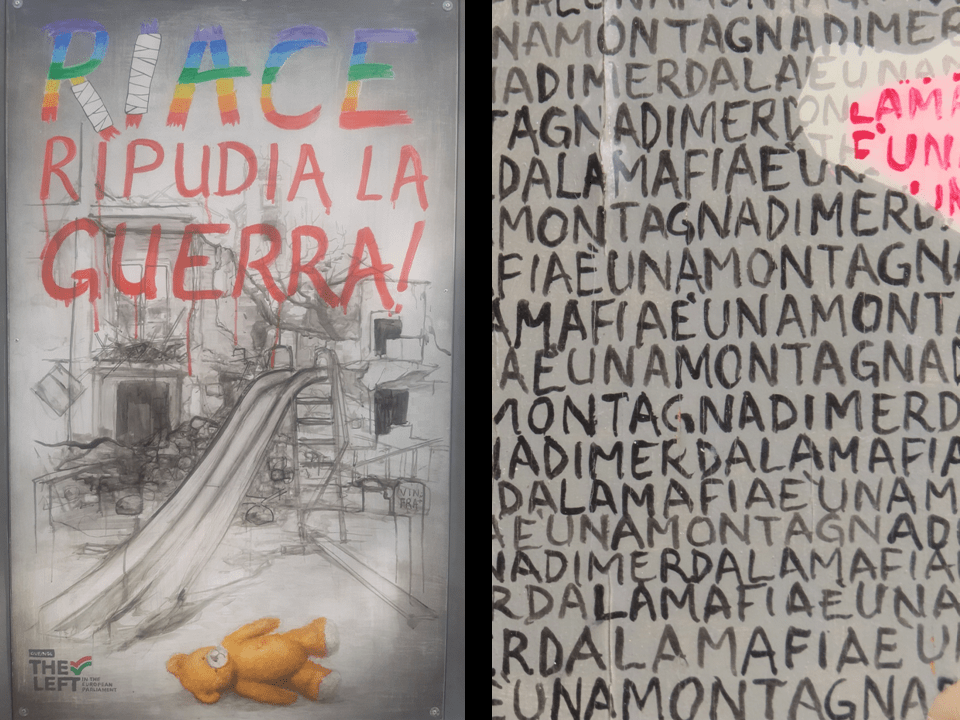 RIACE
RIPUDIA LA
GUERRA!
VIN.
FRA
GUE/NGL
THE LEFT
IN THE
EUROPEAN
PARLIAMENT
NAMONTAGNADIMER
ADIMERDALA EUNAM
TAGNADIMERD ON
LAMA
DALAMAFIAEUN
E'UN
MONTAGNADIMERD
UN
FIAÈUNAMONTAGN
AMAFIAÈUNAMONT
AÈUNAMONTAGNAD
MONTAGNADIMERD
NADIMERDALAMAFIA
DALAMAFIAE'UNAM
AEUNAMONTAGNADI
NADIMERDALAMAFIA
RDALAMAFIAEUNA
ERDALAMAFIAEU
EUNAMONTAGNA